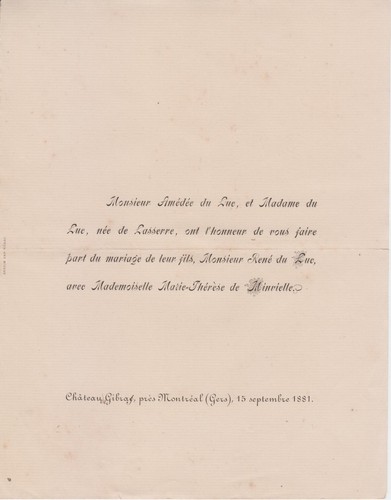 Monsieur Amédée du Luc, et Madame du
Luc, née de Lasserre, ont l'honneur de vous faire
part du mariage de leur fils, Monsieur René du Luc,
avec Mademoiselle Marie-Thérèse de Minvielle.
Château près Montréal (Gers), 15 septembre 1881.